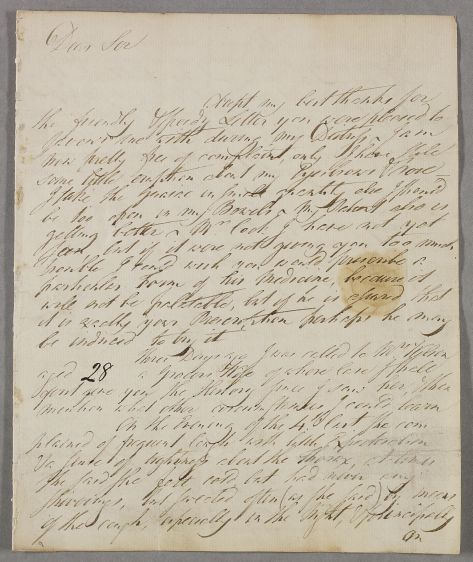 Dear Sir
Accept my best thanks for
the friendly & speedy Letter you were pleased to
favour me with during my Distress I am
now pretty free of complaint, only I have still
some little eruption about my Eyebrows & Nose
I take the in small quantity else I should
be too open in my Bowels. My Throat also is
getting better. Mr Cook I have not yet
seen but if it were not giving you too much
trouble I could wish you would prescribe a
particular form of his Medicine, because it
will not be palatable, but if he is assured that
it is really your Prescription perhaps he may
be induced to try it
three Days ago I was called to Mrs
aged 28 a Grocers Wife of whose case I shall
give you the History since I saw her, & then
mention what other circumstances I could learn
On the Evening of the 4th Inst she com
plained of frequent Cough with little Expectoration
& a sense of tightness about the thorax, at times
she said she felt cold but had never any
shivering, but sweated often (as she said) by means
of the cough, especially in the Night, & principally
on